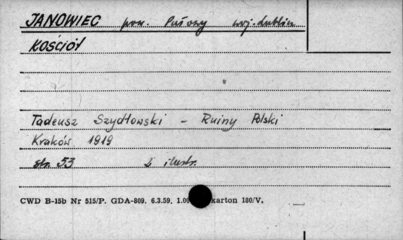 JANOWIEC pow. Puławy woj. Lublin
KOŚCIÓŁ
Tadeusz Szydłowski - Ruiny Polski
Kraków 1919
str. 53 ilustr.
CWD B-15b Nr 515/P. GDA-809. 6.3.59. 1.00 karton 180/V.